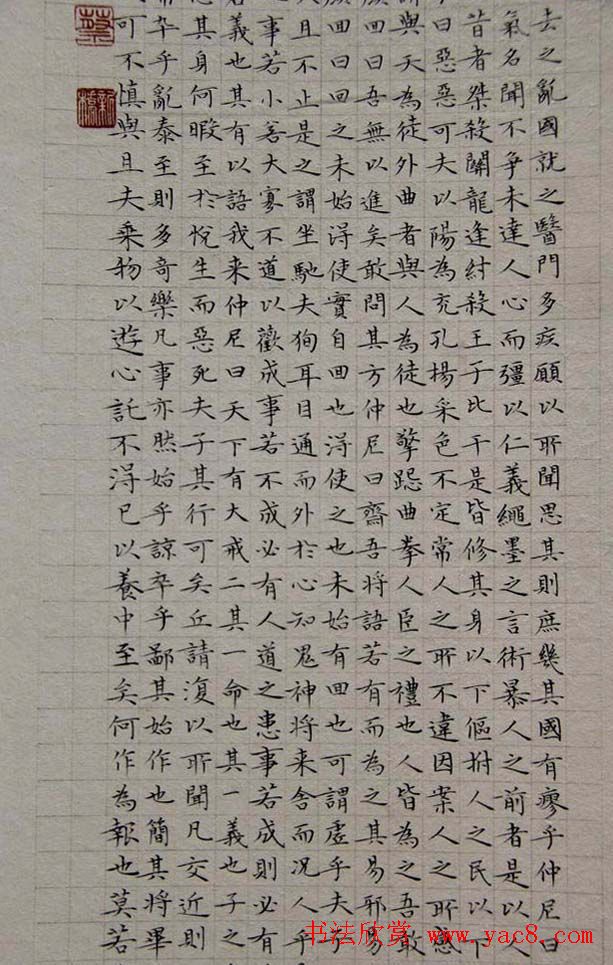 去之亂國就之醫門多疾願以所聞思其則庶幾其國有瘳乎仲尼曰
氣名聞不爭未達人心而彊以仁義繩墨之言術暴人之前者是以人
昔者桀殺關龍逢紂殺王子比干是皆修其身以下傴拊人之民以下
曰惡惡可夫以陽為充孔揚采色不定常人之所不違因案人之所感
謂與天為徒外曲者與人為徒也擎跽曲拳人臣之禮也人皆為之吾敢
顏回曰吾無以進矣敢問其方仲尼曰齋吾將語若有而為之其易邪易
顏回曰回之未始淂使實自回也淂使之也未始有回也可謂虛乎夫子
且不止是之謂坐馳夫徇耳目通而外於心知鬼神将来舍而況人乎
事若小若大寡不道以歡成事若不成必有人道之患事若成則必有
義也其有以語我来仲尼曰天下有大戒二其一命也其一義也子之
其身何暇至於悅生而惡死夫子其行可矣丘請復以所聞凡交近則
常卒乎亂泰至則多奇樂凡事亦然始乎諒卒乎鄙其始作也簡其将畢
可不慎與且夫乘物以遊心託不淂已以養中至矣何作為報也莫若
蔡
书法欣赏 www.yac8.com